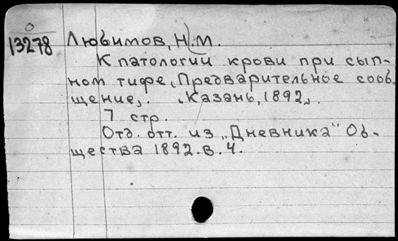 0
13278 Любимов, Н.М.
К патологии крови при сып-
ном тифе, Предварительное сооб-
щение,. Казань, 1892,.
7 стр.
Отд. отт. из „Дневника" Об-
щества 1892.в.4.